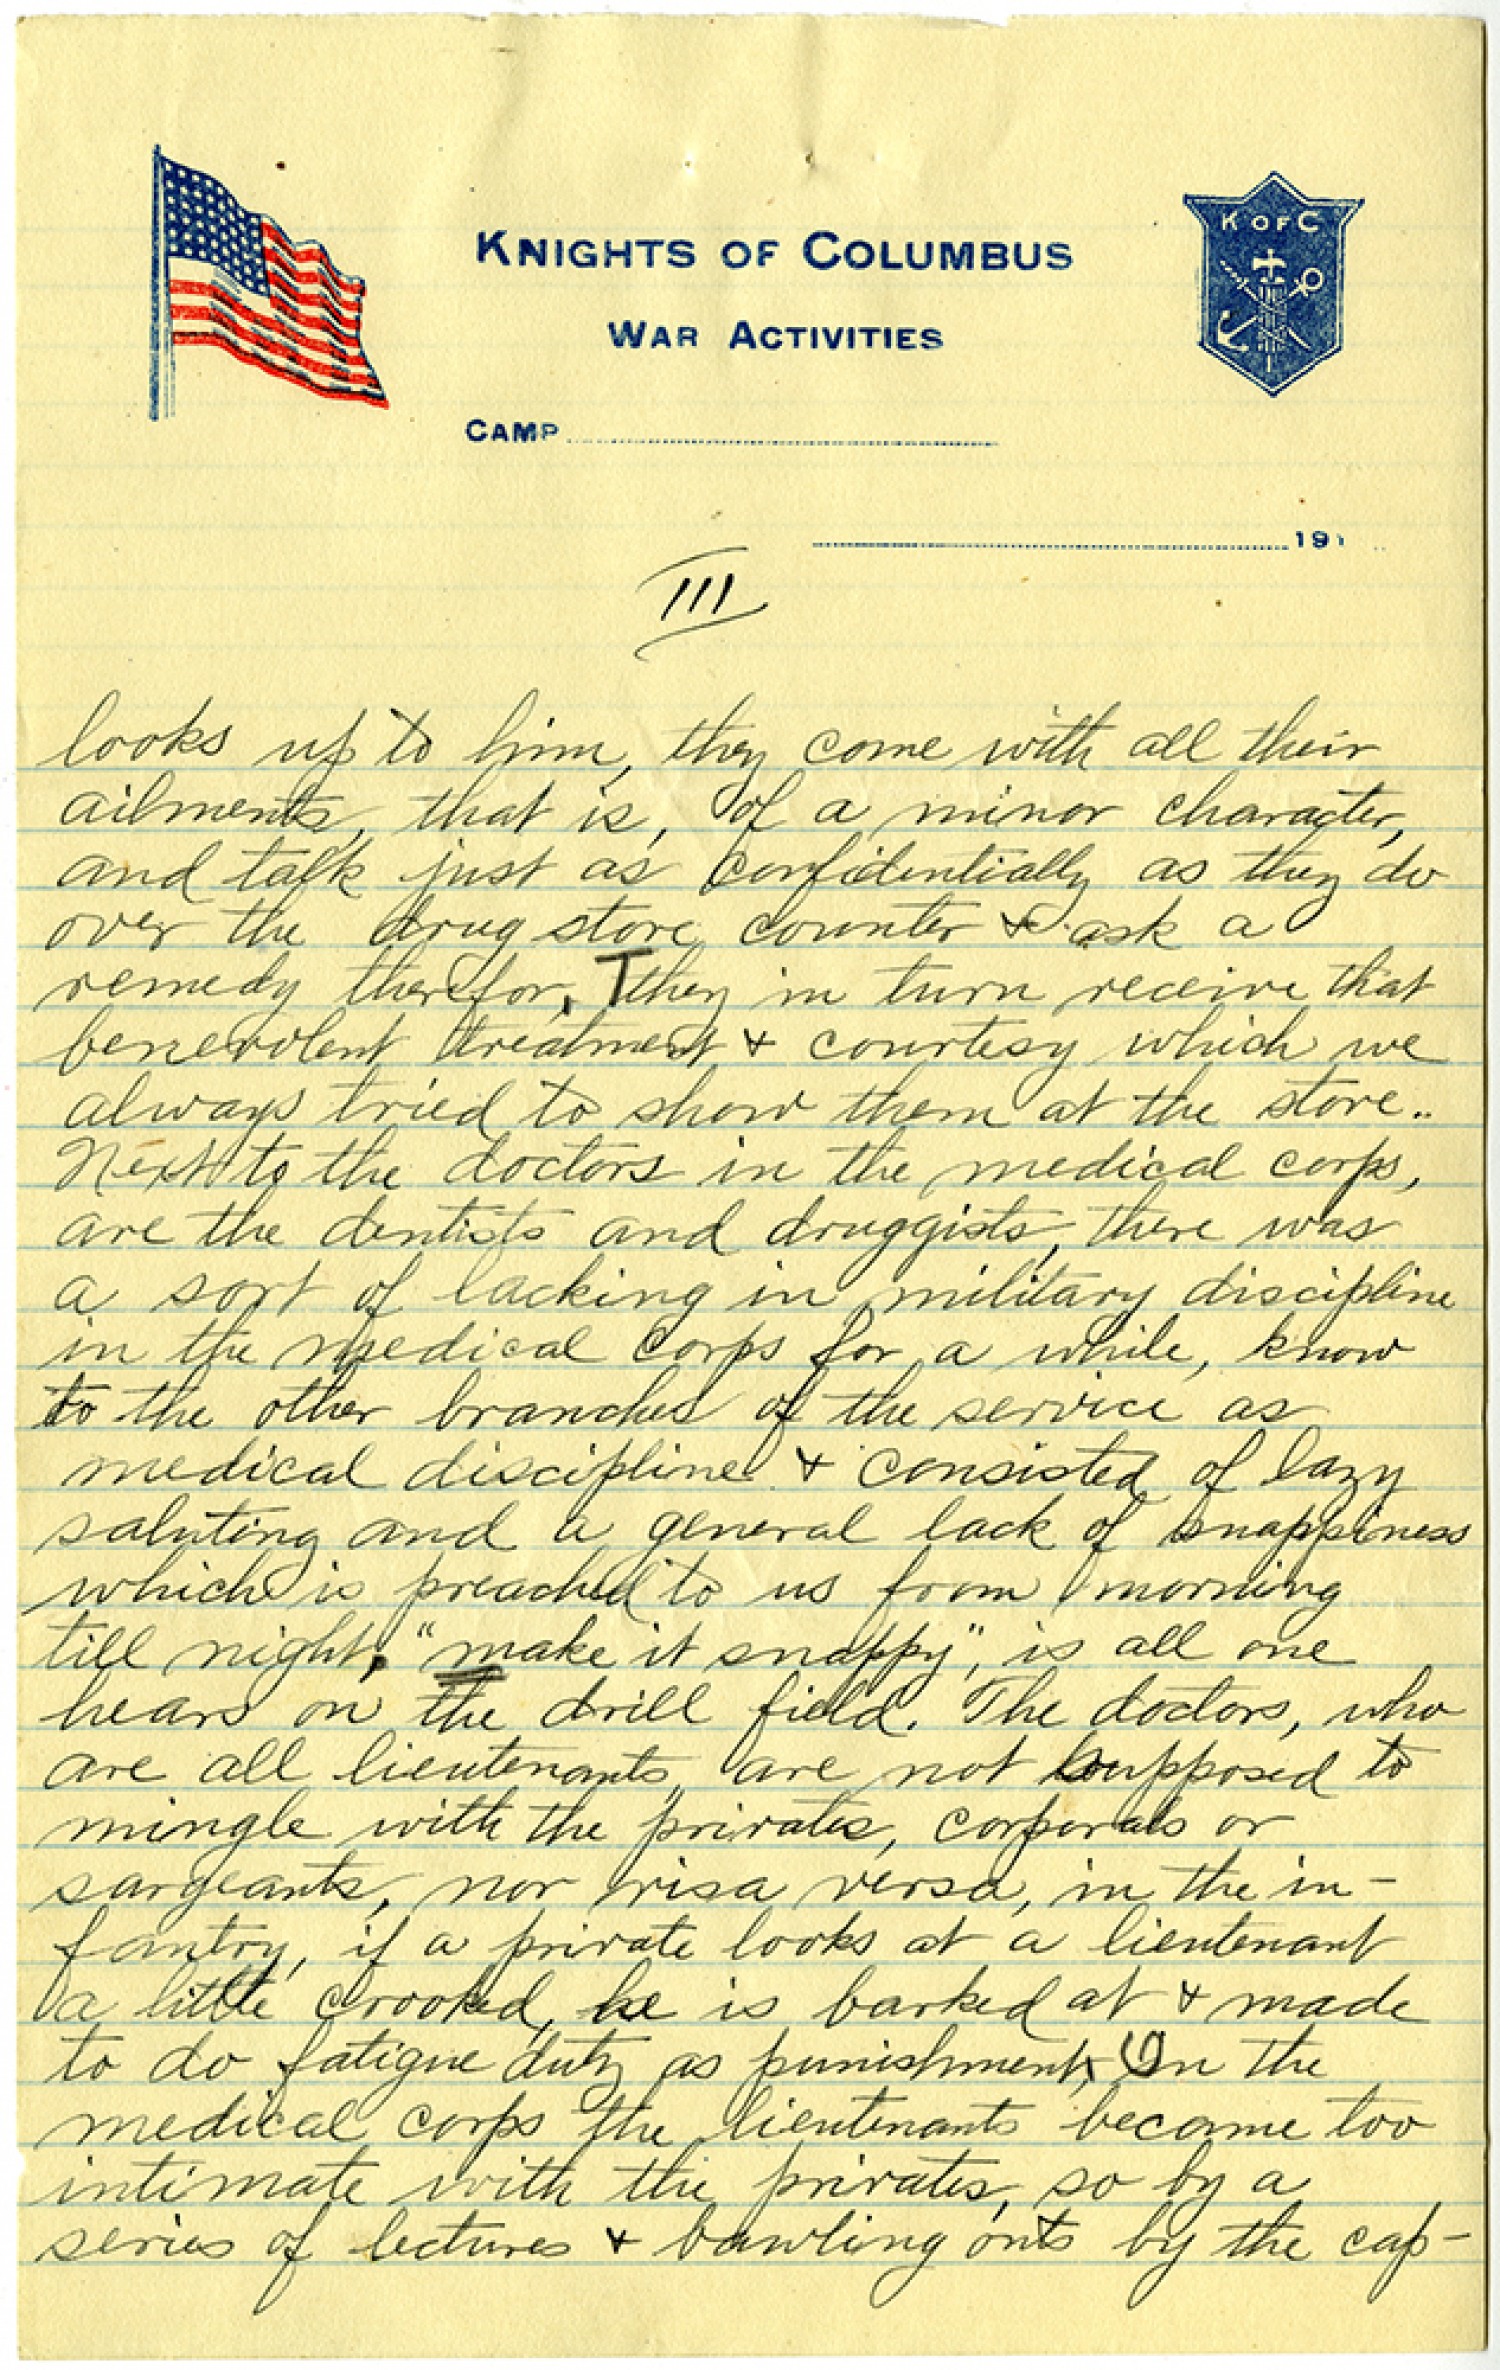 K OF C
KNIGHTS OF COLUMBUS
WAR ACTIVITIES
CAMP
191
III
looks up to him, they come with all their
ailments, that is, of a minor character,
and talk just as confidentially as they do
over the drug store counter & ask a
remedy therefor. They in turn receive that
benevolent treatment & courtesy which we
always tried to show them at the store..
Next to the doctors in the medical corps,
are the dentists and druggists, there was
a sort of lacking in military discipline
in the medical corps for a while, know
to the other branches of the service as
medical discipline & consisted of lazy
saluting and a general lack of snappiness
which is preached to us from morning
till night, "make it snappy", is all one
hears on the drill field. The doctors, who
are all lieutenants, are not supposed to
mingle with the privates, corporals or
sargeants, nor visa versa, in the in-
fantry, if a private looks at a lieutenant
a little crooked, he is barked at & made
to do fatigue duty as punishment, In the
medical corps the lieutenants became too
intimate with the privates, so by a
series of lectures & bawling outs by the cap-